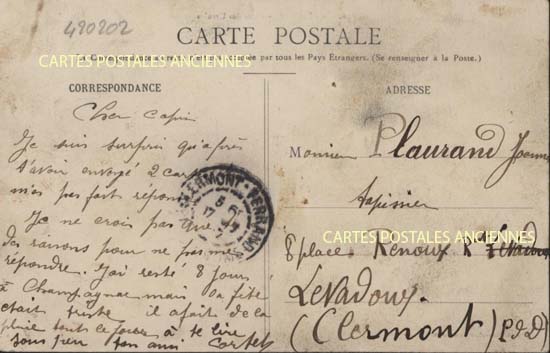 490202
CARTE POSTALE
CARTES POSTALES ANCIENNES
La Correspondance au recto n'est pas acceptée par tous les Pays Etrangers. (Se renseigner à la Poste.)
CORRESPONDANCE
Cher Copin
Je suis surpris qu'après
t'avoir envoyé 2 cartes
m'as pas fait répon
Je ne crois pas que
des raisons pour ne pas me
répondre. J'ai resté 8 jours
à Champagnac mais la fête
était triste il a fait de la
pluie tout le jour à te lire
sous peu ton ami
CLERMONT-FERRAND
ADRESSE
Monsieur Plaurand
tapissier
CARTES POSTALES ANCIENNES
8 place Renoux
LeVadoux
(Clermont) (P.D.D)